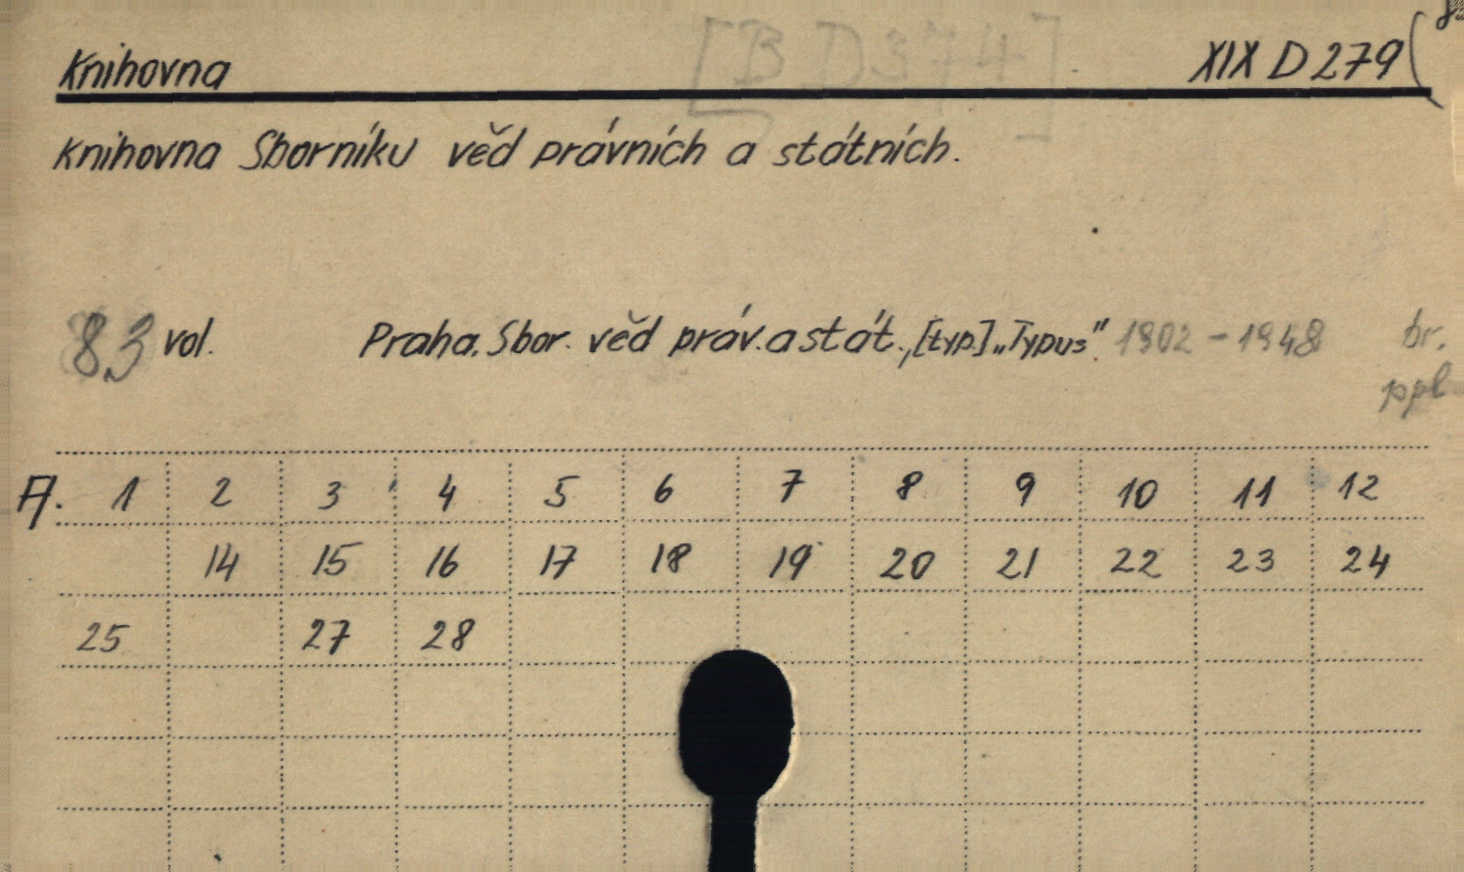 [B D 374]
Knihovna XIX D 279
Knihovna Sborníku věd právních a státních.
83 vol. Praha. Sbor. věd práv. a stát., [typ.] „Typus". 1902 - 1948 br.
ppl
A. 1 2 3 4 5 6 7 8 9 10 11 12
14 15 16 17 18 19 20 21 22 23 24
25 27 28